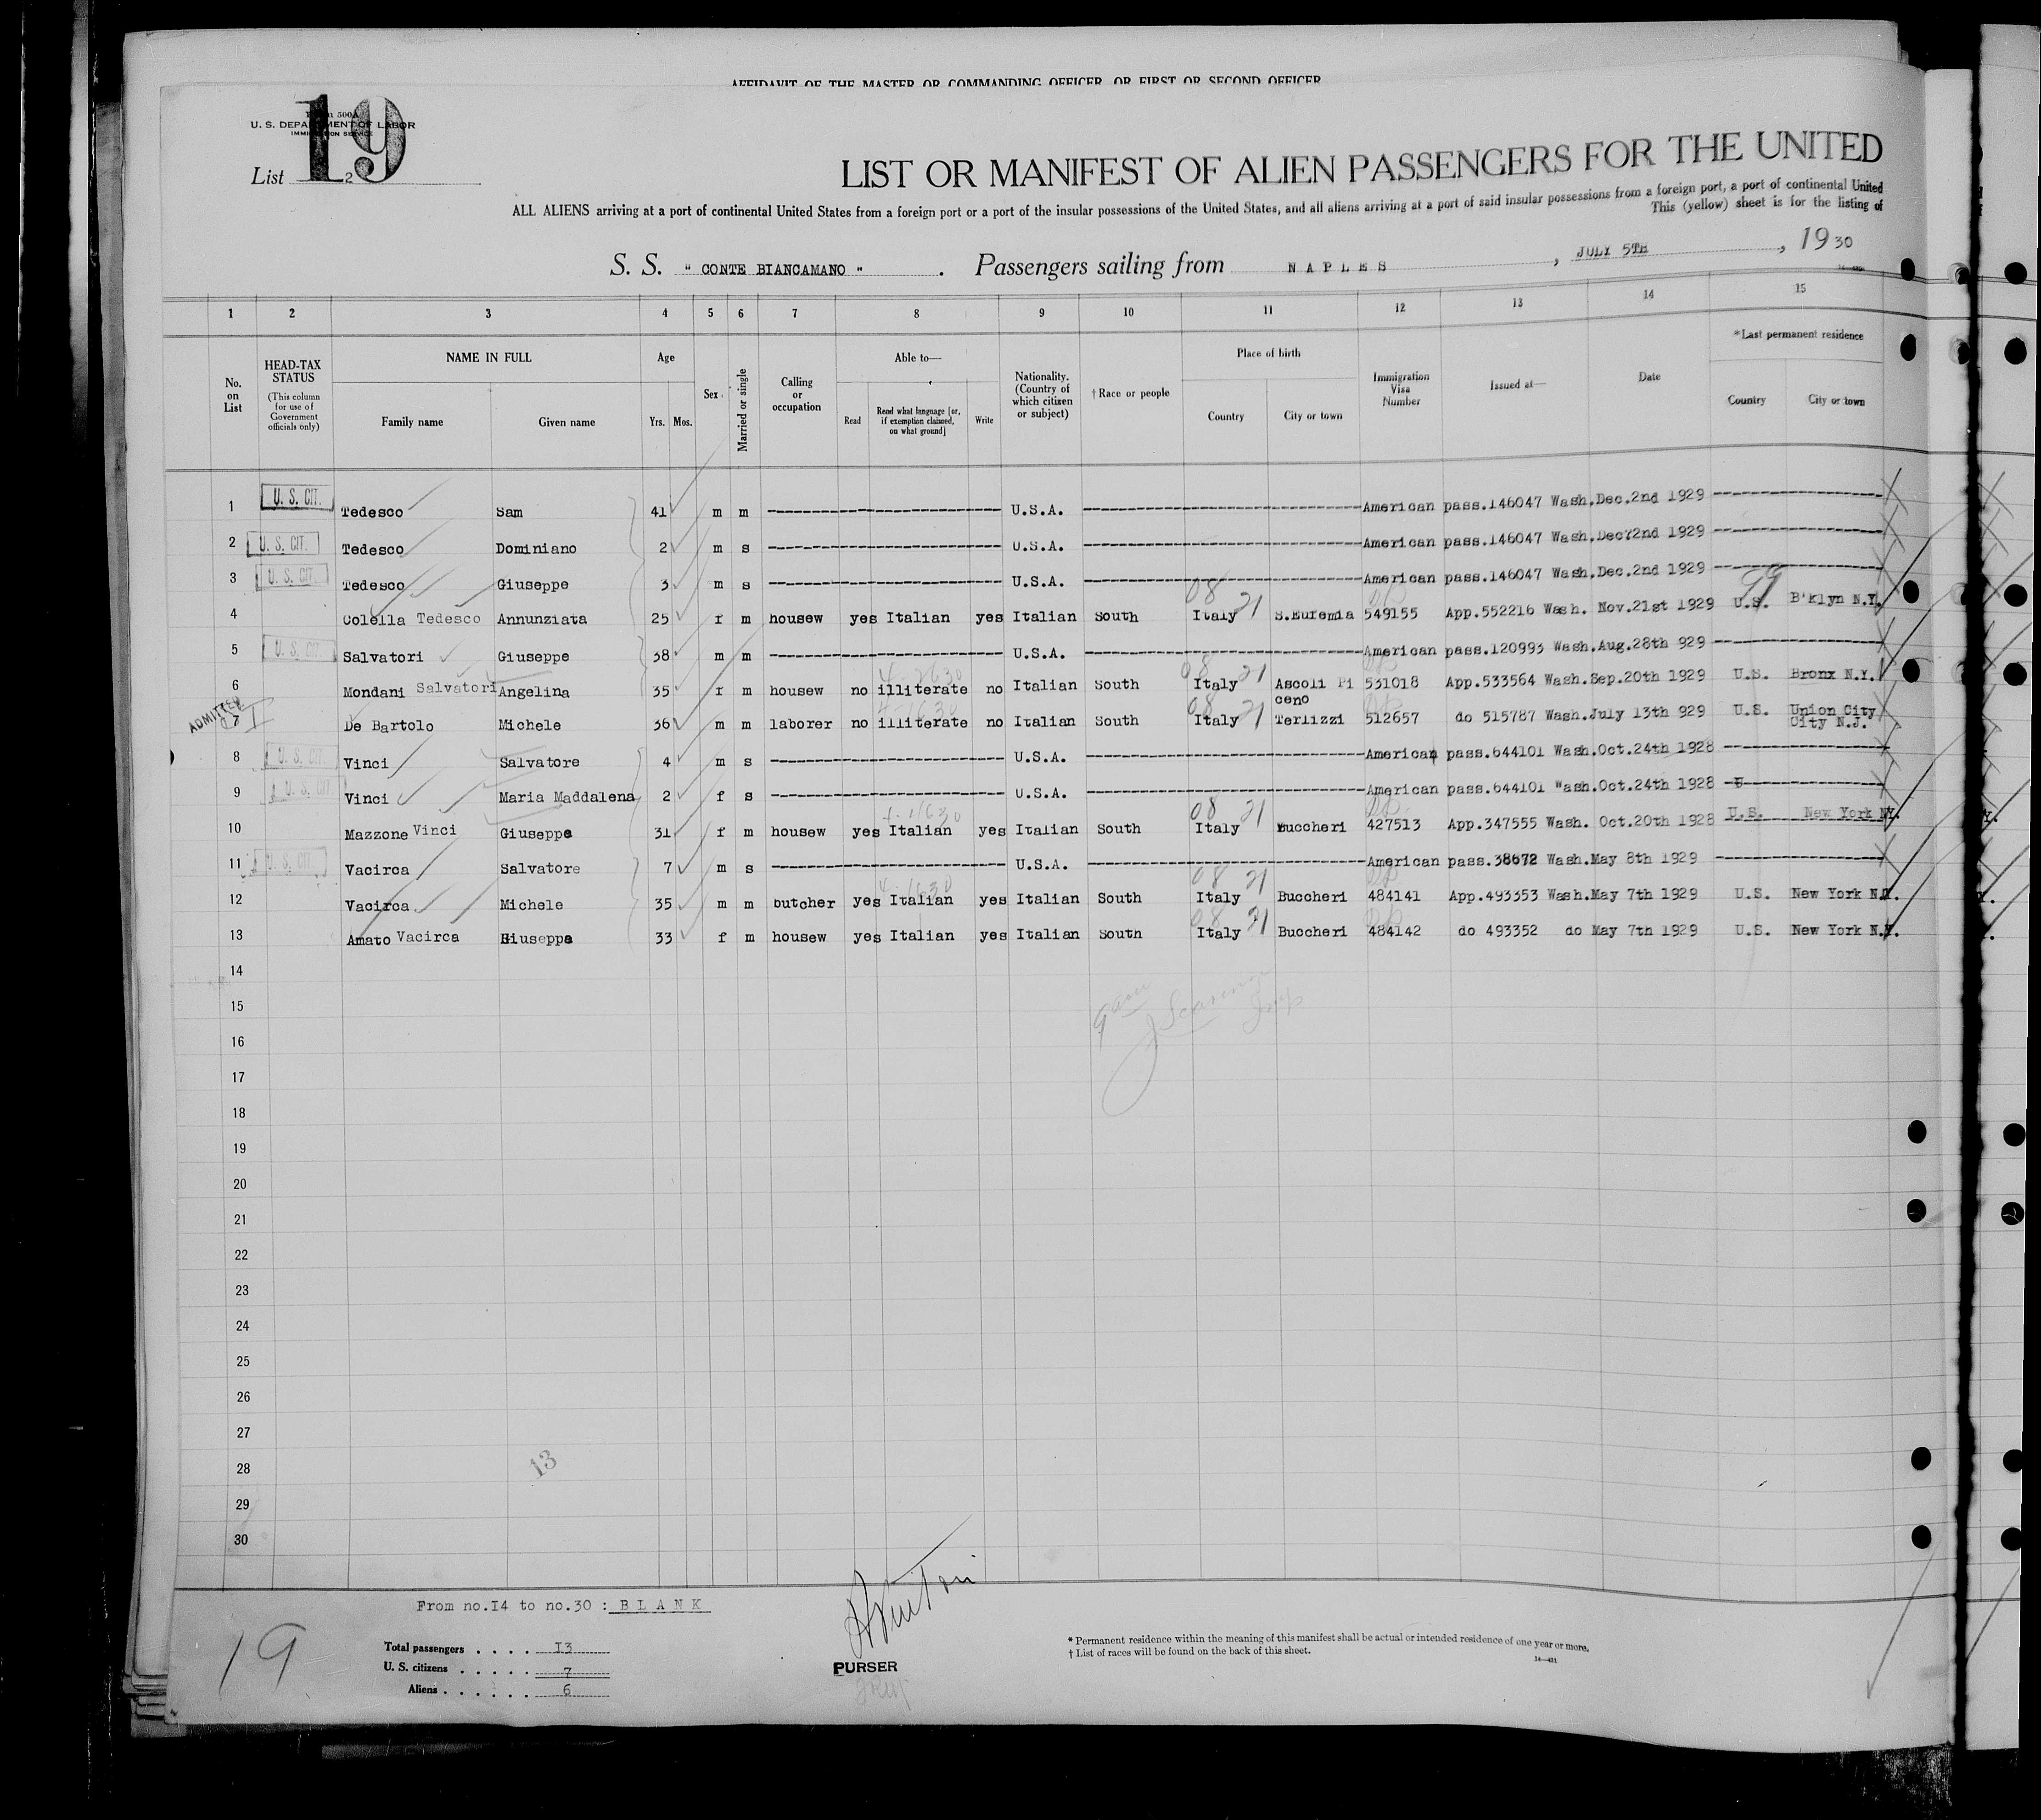 AFFIDAVIT OF THE MASTER OR COMMANDING OFFICER, OR FIRST OR SECOND OFFICER
Form 500A
U. S. DEPARTMENT OF LABOR
IMMIGRATION SERVICE
List 19
2
LIST OR MANIFEST OF ALIEN PASSENGERS FOR THE UNITED
ALL ALIENS arriving at a port of continental United States from a foreign port or a port of the insular possessions of the United States, and all aliens arriving at a port of said insular possessions from a foreign port, a port of continental United
This (yellow) sheet is for the listing of
S. S. " CONTE BIANCAMANO " . Passengers sailing from N A P L E S , JULY 5TH , 19 30
1 2 3 4 5 6 7 8 9 10 11 12 13 14 15
No. on List
HEAD-TAX STATUS (This column for use of Government officials only)
NAME IN FULL
Family name Given name
Age
Yrs. Mos.
Sex
Married or single
Calling or occupation
Able to—
Read Read what language [or, if exemption claimed, on what ground] Write
Nationality. (Country of which citizen or subject)
† Race or people
Place of birth
Country City or town
Immigration Visa Number
Issued at—
Date
*Last permanent residence
Country City or town
1 U. S. CIT. Tedesco Sam 41 m m U.S.A. American pass.146047 Wash.Dec.2nd 1929
2 U. S. CIT. Tedesco Dominiano 2 m s U.S.A. American pass.146047 Wash.Dec?2nd 1929
3 U. S. CIT. Tedesco Giuseppe 3 m s U.S.A. American pass.146047 Wash.Dec.2nd 1929
08 21 99
4 Colella Tedesco Annunziata 25 f m housew yes Italian yes Italian South Italy S.Eufemia 549155 App.552216 Wash. Nov.21st 1929 U.S. B'klyn N.Y.
5 U. S. CIT. Salvatori Giuseppe 38 m m U.S.A. American pass.120993 Wash.Aug.28th 929
08 21
6 Mondani Salvatori Angelina 35 f m housew no illiterate no Italian South Italy Ascoli Pi ceno 531018 App.533564 Wash.Sep.20th 1929 U.S. Bronx N.Y.
ADMITTED
08 21
7 De Bartolo Michele 36 m m laborer no illiterate no Italian South Italy Terlizzi 512657 do 515787 Wash.July 13th 929 U.S. Union City City N.J.
8 U. S. CIT. Vinci Salvatore 4 m s U.S.A. American pass.644101 Wash.Oct.24th 1928
9 U. S. CIT. Vinci Maria Maddalena 2 f s U.S.A. American pass.644101 Wash.Oct.24th 1928
08 21
10 Mazzone Vinci Giuseppe 31 f m housew yes Italian yes Italian South Italy Buccheri 427513 App.347555 Wash. Oct.20th 1928 U.S. New York NY.
11 U. S. CIT. Vacirca Salvatore 7 m s U.S.A. American pass.38672 Wash.May 8th 1929
08 21
12 Vacirca Michele 35 m m butcher yes Italian yes Italian South Italy Buccheri 484141 App.493353 Wash.May 7th 1929 U.S. New York N.Y.
08 21
13 Amato Vacirca Giuseppe 33 f m housew yes Italian yes Italian South Italy Buccheri 484142 do 493352 do May 7th 1929 U.S. New York N.Y.
14
15
16
17
18
19
20
21
22
23
24
25
26
27
28
13
29
30
From no.I4 to no.30 : B L A N K
19
Total passengers . . . . I3
U. S. citizens . . . . . 7
Aliens . . . . . . 6
PURSER
* Permanent residence within the meaning of this manifest shall be actual or intended residence of one year or more.
† List of races will be found on the back of this sheet.